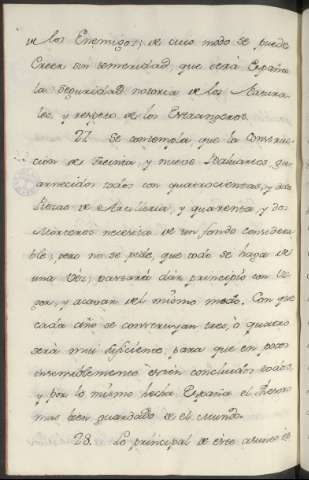 de los Enemigos; de cuio modo se puede
Creer sin temeridad, que será España
la seguridad notoria de los Natura-
les, y respeto de los Extrangeros.
27. Se contempla, que la Construc-
cion de treinta, y nueve Baluartes, gu-
arnecidos todos con quatrocientas, y dos
Piezas de Artilleria, y quarenta, y dos
Morteros necesita de un fondo considera-
ble; pero no se pide, que todo se haga de
una vez; bastará dár principio con Vi-
gor, y acavar del mismo modo. Con que
cada año se construyan tres, ó quatro
será mui suficiente, para que en pocos
insensiblemente estén concluidos todos,
y por lo mismo hecha España el Thesoro
mas bien guardado de el Mundo.
28. Lo principal de este asunto es